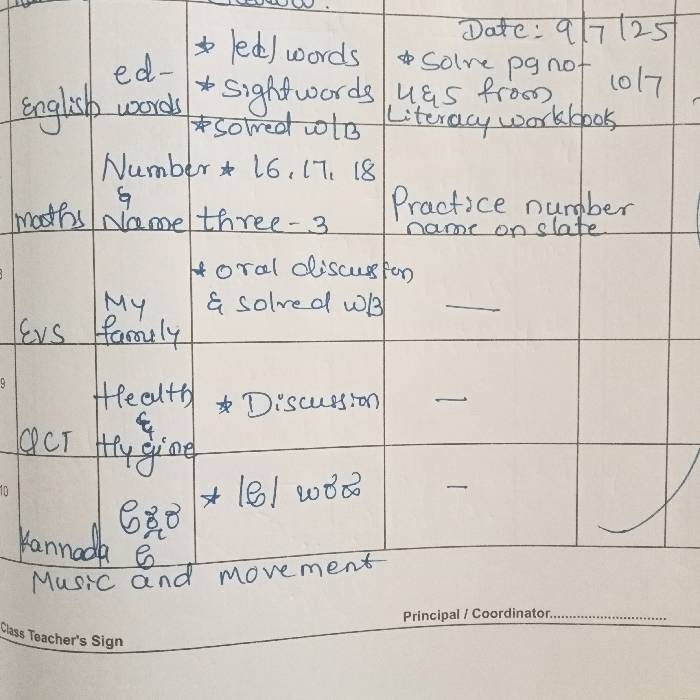 Date: 9/7/25
English
ed-
words
* /ed/ words
* Sight words
* Solved w/B
* Solve pg no-
4&5 from
Literacy workbook
10/7
maths
Number
&
Name
* 16, 17, 18
three - 3
Practice number
name on slate
EVS
My
family
* oral discussion
& solved w/B
—
9
Health
&
Hygine
* Discussion
—
10
Kannada
ಅಕ್ಷರ
* /ಅ/ ಬರಹ
—
Music and movement
Principal / Coordinator..............................
Class Teacher's Sign